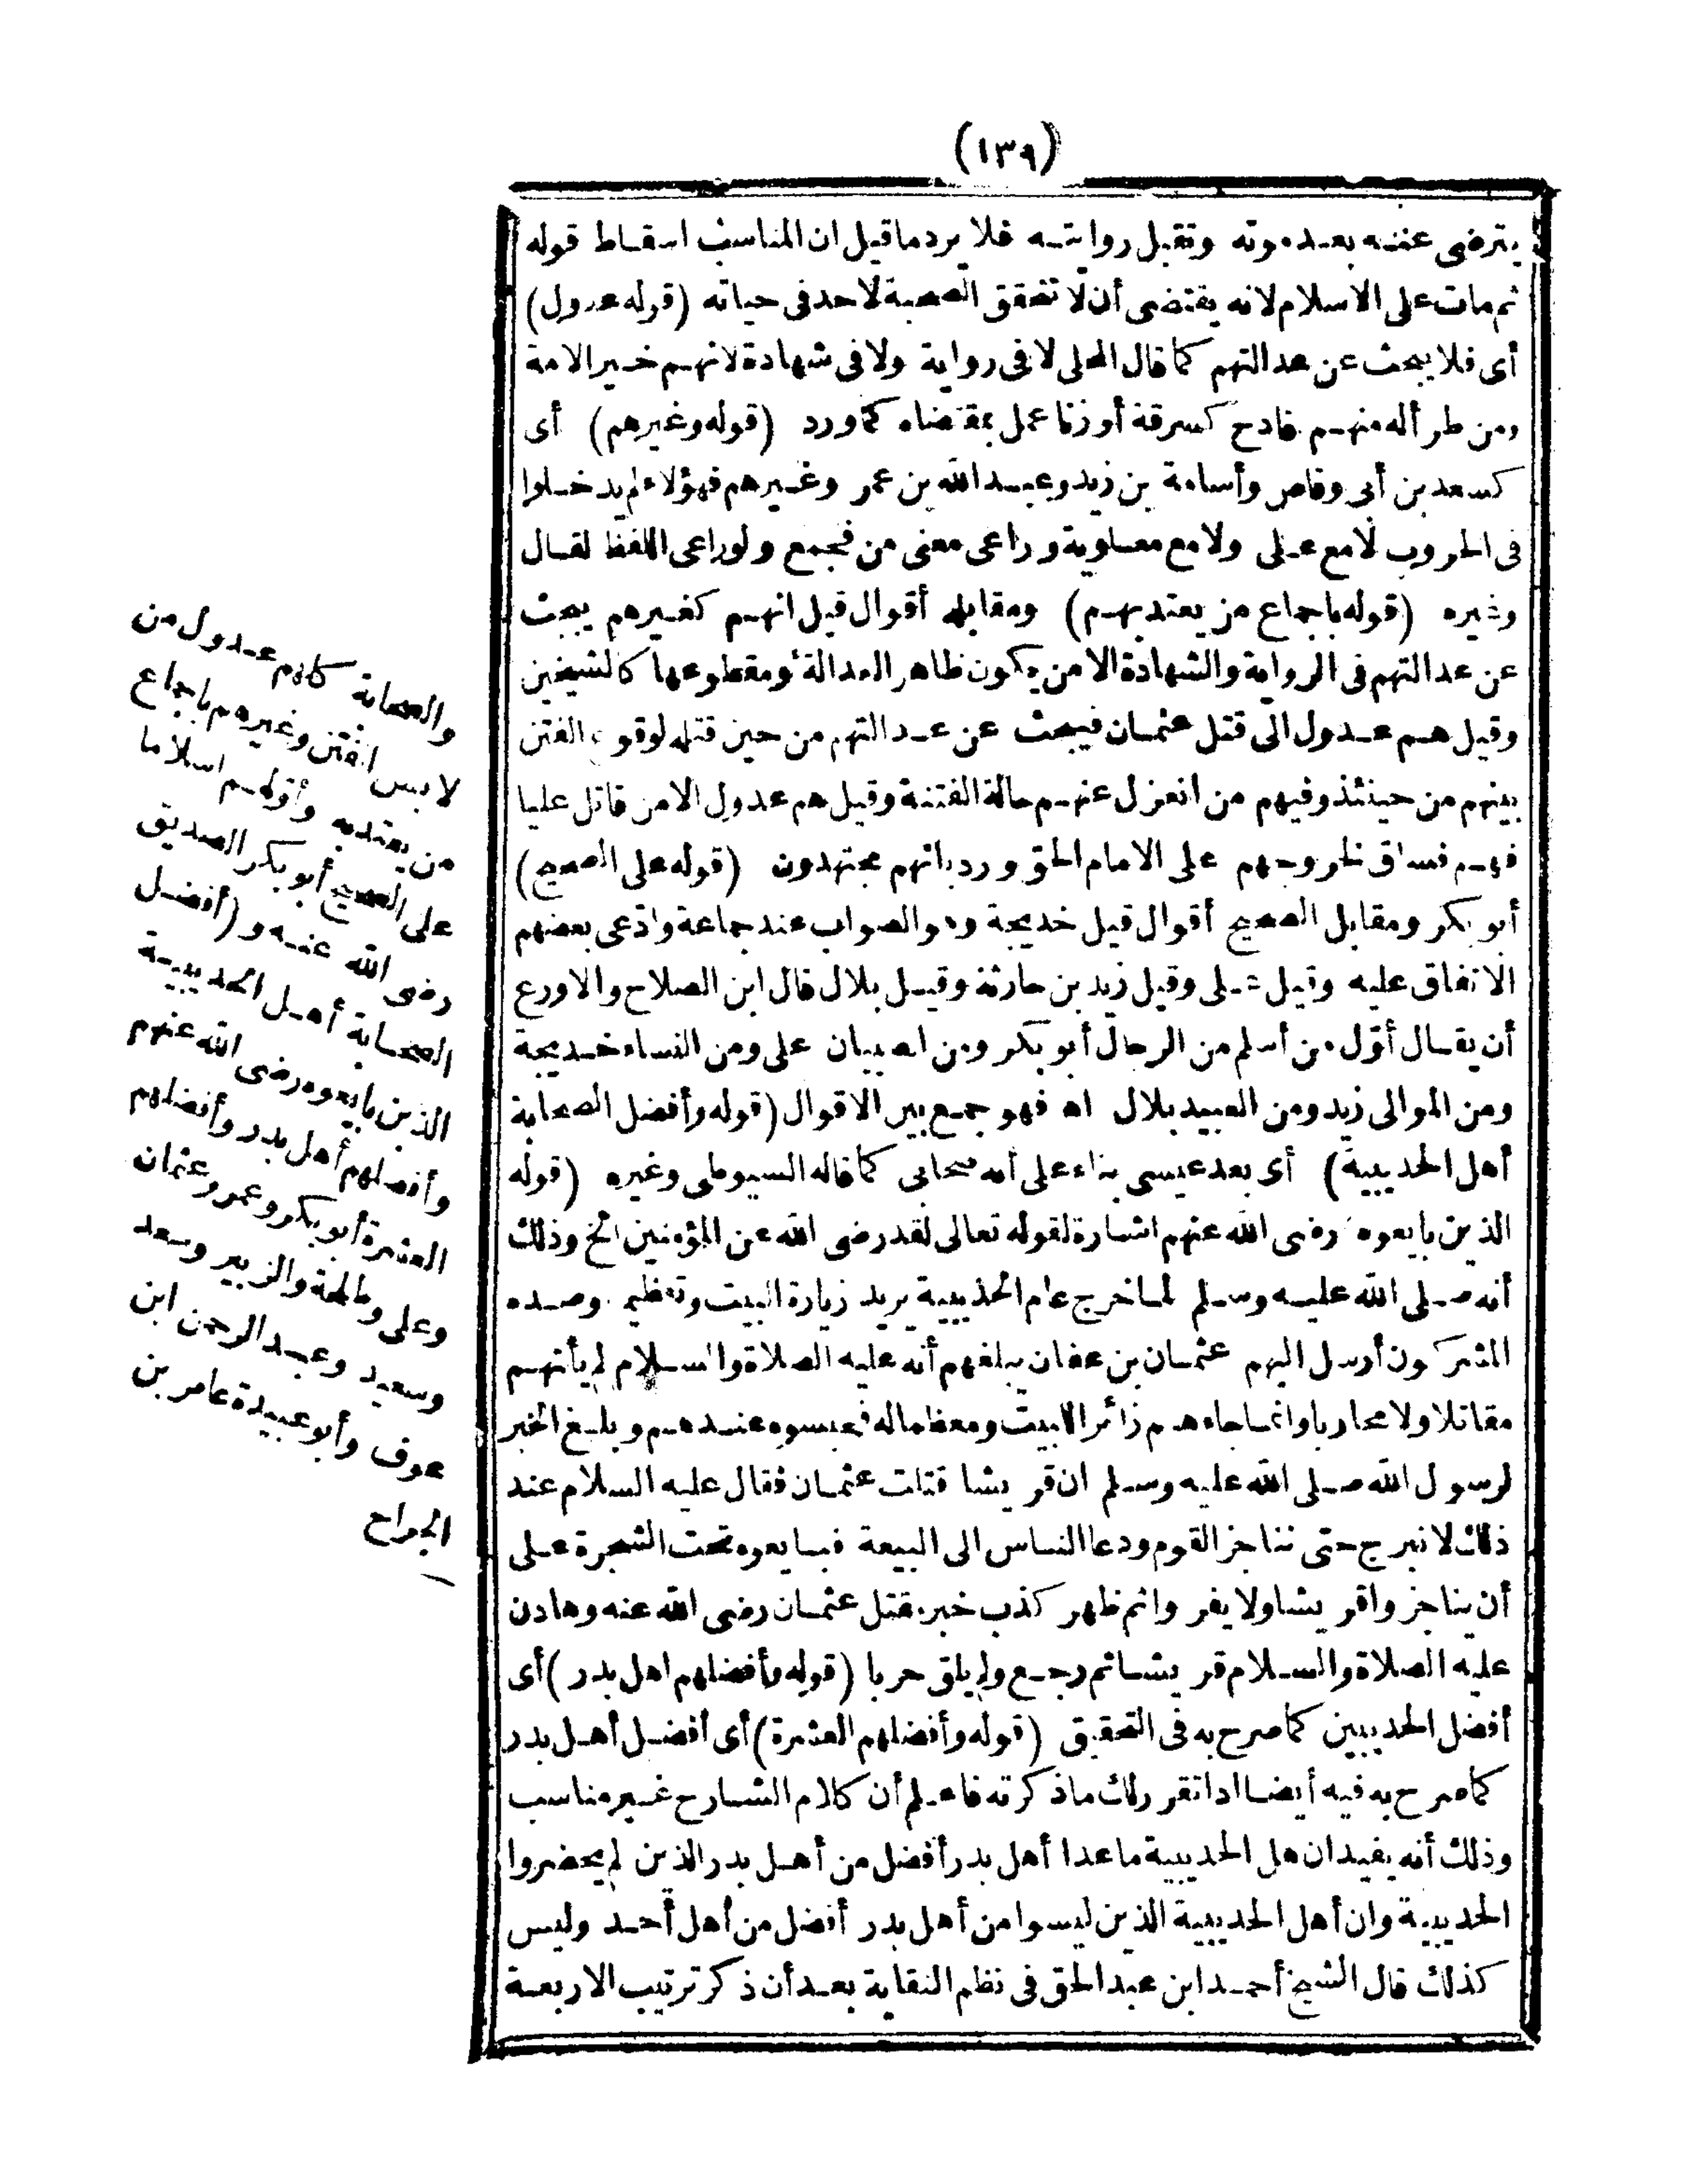 (١٣٩)
يترضى عنه بعد موته وتقبل روايته فلا يرد ما قيل ان المناسب اسقاط قوله
ثم مات على الاسلام لانه يقتضى أن لا تتحقق الصحبة لاحد فى حياته (قوله عدول)
أى فلا يبحث عن عدالتهم كما قال المحلى لا فى رواية ولا فى شهادة لانهم خير الامة
ومن طرأ له منهم قادح كسرقة أو زنا عمل بمقتضاه كما ورد (قوله وغيرهم) أى
كسعد بن أبى وقاص وأسامة بن زيد وعبد الله بن عمر وغيرهم فهؤلاء لم يدخلوا
فى الحروب لا مع على ولا مع معاوية وراعى معنى من فجمع ولو راعى اللفظ لقال
وغيره (قوله باجماع من يعتد بهم) ومقابله أقوال قيل انهم كغيرهم يبحث
عن عدالتهم فى الرواية والشهادة الا من يكون ظاهر العدالة أو مقطوعها كالشيخين
وقيل هم عدول الى قتل عثمان فيبحث عن عدالتهم من حين قتله لوقوع الفتن
بينهم من حينئذ وفيهم من انعزل عنهم حالة الفتنة وقيل هم عدول الا من قاتل عليا
فهم فساق لخروجهم على الامام الحق ورد بانهم مجتهدون (قوله على الصحيح)
أبو بكر ومقابل الصحيح أقوال قيل خديجة وهو الصواب عند جماعة وادّعى بعضهم
الاتفاق عليه وقيل على وقيل زيد بن حارثة وقيل بلال قال ابن الصلاح والاورع
أن يقال أوّل من أسلم من الرجال أبو بكر ومن الصبيان على ومن النساء خديجة
ومن الموالى زيد ومن العبيد بلال اه فهو جمع بين الاقوال (قوله وأفضل الصحابة
أهل الحديبية) أى بعد عيسى بناء على أنه صحابى كما قاله السيوطى وغيره (قوله
الذين بايعوه رضى الله عنهم اشارة لقوله تعالى لقد رضى الله عن المؤمنين الخ وذلك
أنه صلى الله عليه وسلم لما خرج عام الحديبية يريد زيارة البيت وتعظيمه وصده
المشركون أرسل اليهم عثمان بن عفان يبلغهم أنه عليه الصلاة والسلام لم يأتهم
مقاتلا ولا محاربا وانما جاءهم زائرا لابيت ومعظما له فحبسوه عندهم وبلغ الخبر
لرسول الله صلى الله عليه وسلم ان قريشا قتلت عثمان فقال عليه السلام عند
ذلك لا نبرح حتى نناجز القوم ودعا الناس الى البيعة فبايعوه تحت الشجرة على
أن يناجزوا قريشا ولا يفروا ثم ظهر كذب خبر قتل عثمان رضى الله عنه وهادن
عليه الصلاة والسلام قريشا ثم رجع ولم يلق حربا (قوله وأفضلهم اهل بدر) أى
أفضل الحديبيين كما صرح به فى التحقيق (قوله وأفضلهم العشرة) أى أفضل أهل بدر
كما صرح به فيه أيضا اذا تقرر لك ما ذكرته فاعلم أن كلام الشارح غير مناسب
وذلك أنه يفيد ان هل الحديبية ما عدا أهل بدر أفضل من أهل بدر الذين لم يحضروا
الحديبية وان أهل الحديبية الذين ليسوا من أهل بدر أفضل من أهل أحد وليس
كذلك قال الشيخ أحمد ابن عبد الحق فى نظم النقاية بعد أن ذكر ترتيب الاربعة
والصحابة كلهم عدول من
لابس الفتن وغيرهم باجماع
من يعتد به وأوّلهم اسلاما
على الصحيح أبو بكر الصديق
رضى الله عنه و(أفضل
الصحابة أهل الحديبية
الذين بايعوه رضى الله عنهم
وأفضلهم أهل بدر وأفضلهم
العشرة أبو بكر وعمر وعثمان
وعلى وطلحة والزبير وسعد
وسعيد وعبد الرحمن ابن
عوف وأبو عبيدة عامر بن
الجراح